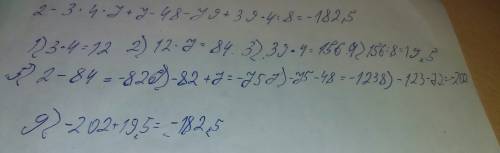 2-3·4·7+7-48-79+39·4:8=-182,5
1) 3·4=12 2) 12·7=84. 3) 39·4=156 4) 156:8=19,5
5) 2-84=-82 6) -82+7=-75 7) -75-48=-123 8) -123-79=-202
9) -202+19,5=-182,5